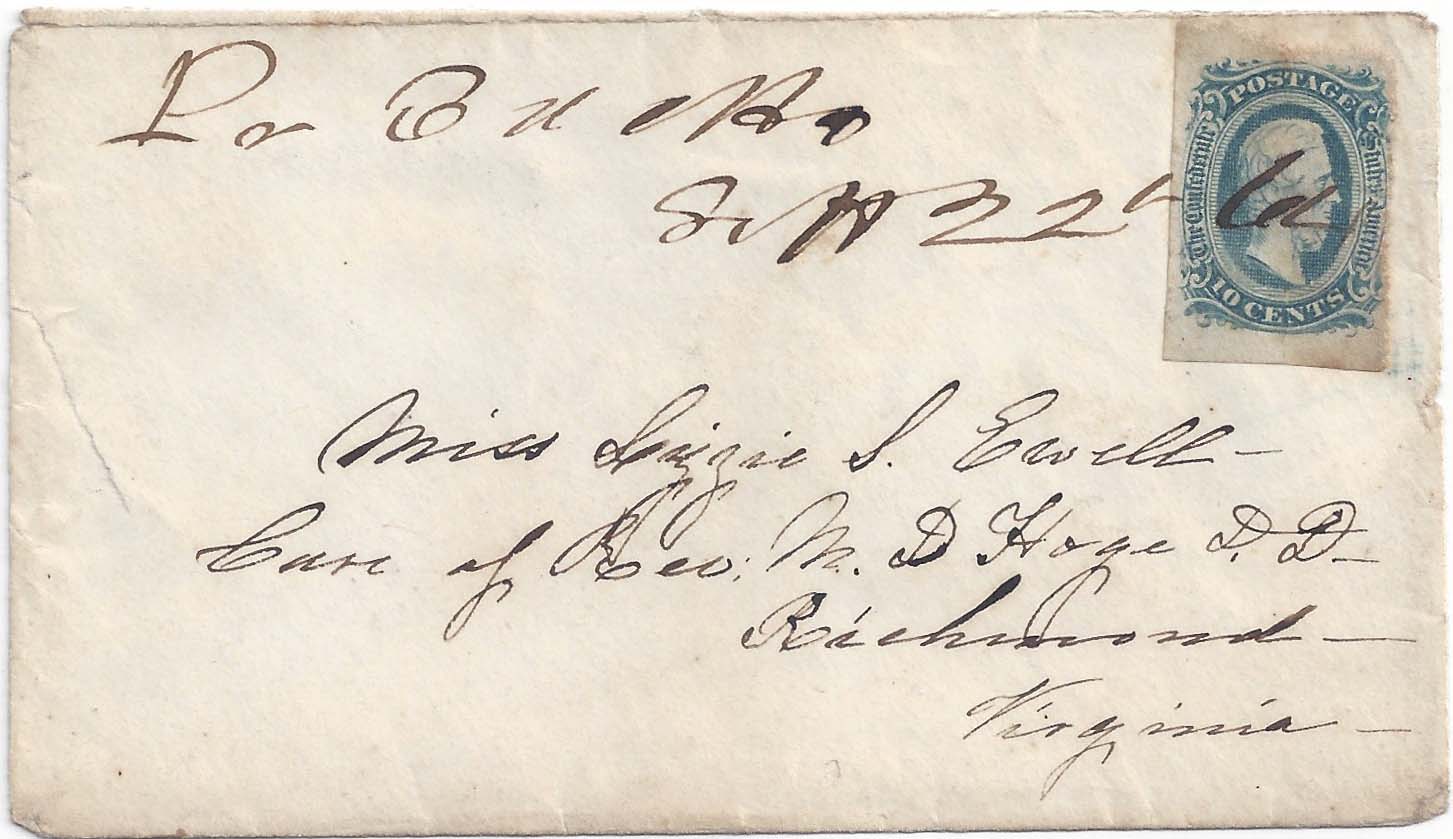 Sept 22
POSTAGE
The Confederate States of America
10 CENTS
Miss Lizzie S. Ewell -
Care of Rev: M. D Hoge D. D -
Richmond -
Virginia -